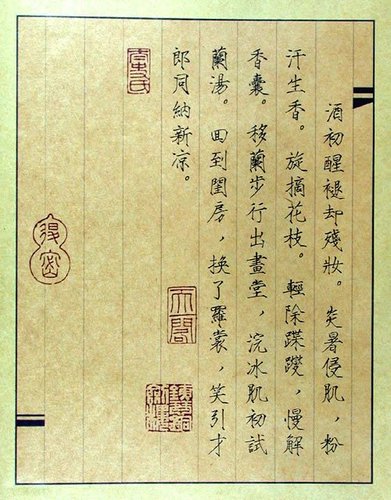 酒初醒褪却殘妝。炎暑侵肌，粉
汗生香。旋摘花枝。輕除蹀躞，慢解
香囊。移蘭步行出畫堂，浣冰肌初試
蘭湯。回到閨房，換了羅裳，笑引才
郎同納新凉。